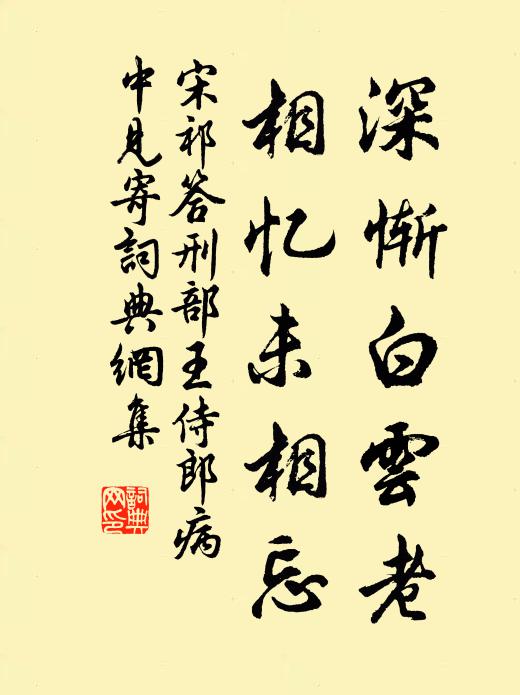 深惭白雲老
相忆未相忘
宋祁答刑部王侍郎病
中見寄詞典網集
詞典
网印